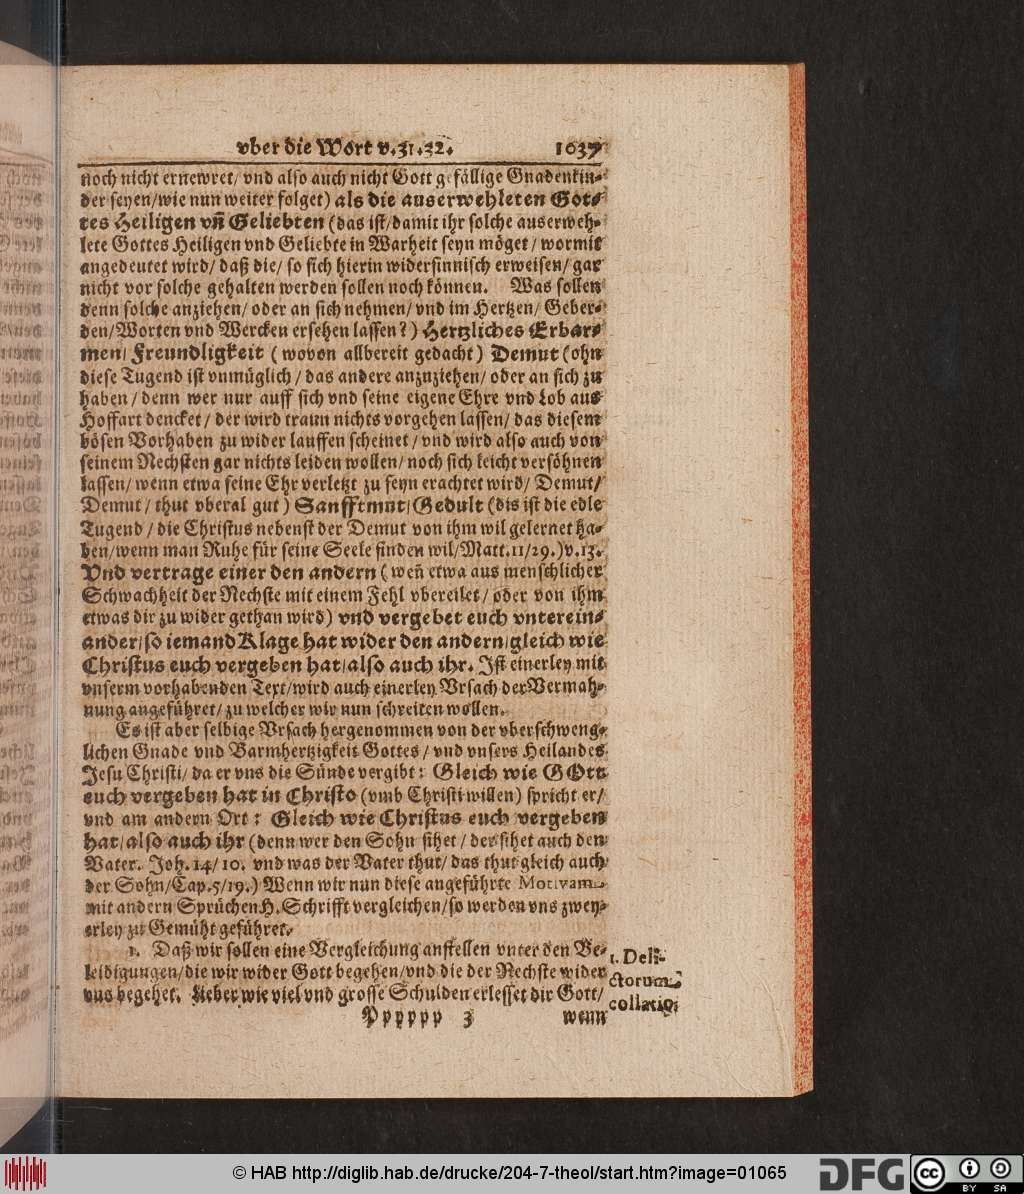 vber die Wort v.31.32. 1037
noch nicht ernewret/ vnd also auch nicht Gott gefällige Gnadenkin-
der seyen/wie nun weiter folget) als die auserwehleten Got-
tes Heiligen vñ Geliebten (das ist/damit ihr solche auserweh-
lete Gottes Heiligen vnd Geliebte in Warheit seyn möget/ wormit
angedeutet wird/ daß die/ so sich hierin widersinnisch erweisen/ gar
nicht vor solche gehalten werden sollen noch können. Was sollen
denn solche anziehen/ oder an sich nehmen/ vnd im Hertzen/ Geber-
den/Worten vnd Wercken ersehen lassen?) Hertzliches Erbar-
men/ Freundligkeit (wovon allbereit gedacht) Demut (ohn
diese Tugend ist vnmüglich/ das andere anzuziehen/ oder an sich zu
haben/ denn wer nur auff sich vnd seine eigene Ehre vnd Lob aus
Hoffart dencket/ der wird traun nichts vorgehen lassen/ das diesem
bösen Vorhaben zu wider lauffen scheinet/ vnd wird also auch von
seinem Nechsten gar nichts leiden wollen/ noch sich leicht versöhnen
lassen/ wenn etwa seine Ehr verletzt zu seyn erachtet wird/ Demut/
Demut/ thut vberal gut) Sanfftmut/ Gedult (dis ist die edle
Tugend/ die Christus nebenst der Demut von ihm wil gelernet ha-
ben/wenn man Ruhe für seine Seele finden wil/Matt.11/29.)v.13.
Vnd vertrage einer den andern (weñ etwa aus menschlicher
Schwachheit der Nechste mit einem Fehl vbereilet/ oder von ihm
etwas dir zu wider gethan wird) vnd vergebet euch vnterein-
ander/ so iemand Klage hat wider den andern/ gleich wie
Christus euch vergeben hat/ also auch ihr. Ist einerley mit
vnserm vorhabenden Text/wird auch einerley Vrsach der Vermah-
nung angeführet/ zu welcher wir nun schreiten wollen.
Es ist aber selbige Vrsach hergenommen von der vberschweng-
lichen Gnade vnd Barmhertzigkeit Gottes/ vnd vnsers Heilandes
Jesu Christi/ da er vns die Sünde vergibt: Gleich wie GOtt
euch vergeben hat in Christo (vmb Christi willen) spricht er/
vnd am andern Ort: Gleich wie Christus euch vergeben
hat/ also auch ihr (denn wer den Sohn sihet/ der sihet auch den
Vater. Joh. 14/ 10. vnd was der Vater thut/ das thut gleich auch
der Sohn/Cap.5/19.) Wenn wir nun diese angeführte Motivam
mit andern Sprüchen H. Schrifft vergleichen/so werden vns zwey-
erley zu Gemüht geführet.
1. Daß wir sollen eine Vergleichung anstellen vnter den Be-
leidigungen/die wir wider Gott begehen/vnd die der Nechste wider
vns begehet. Lieber wie viel vnd grosse Schulden erlesset dir Gott/
1. Deli-
ctorum
collatio.
Pppppp 3 wenn
© HAB http://diglib.hab.de/drucke/204-7-theol/start.htm?image=01065
DFG
cc BY SA